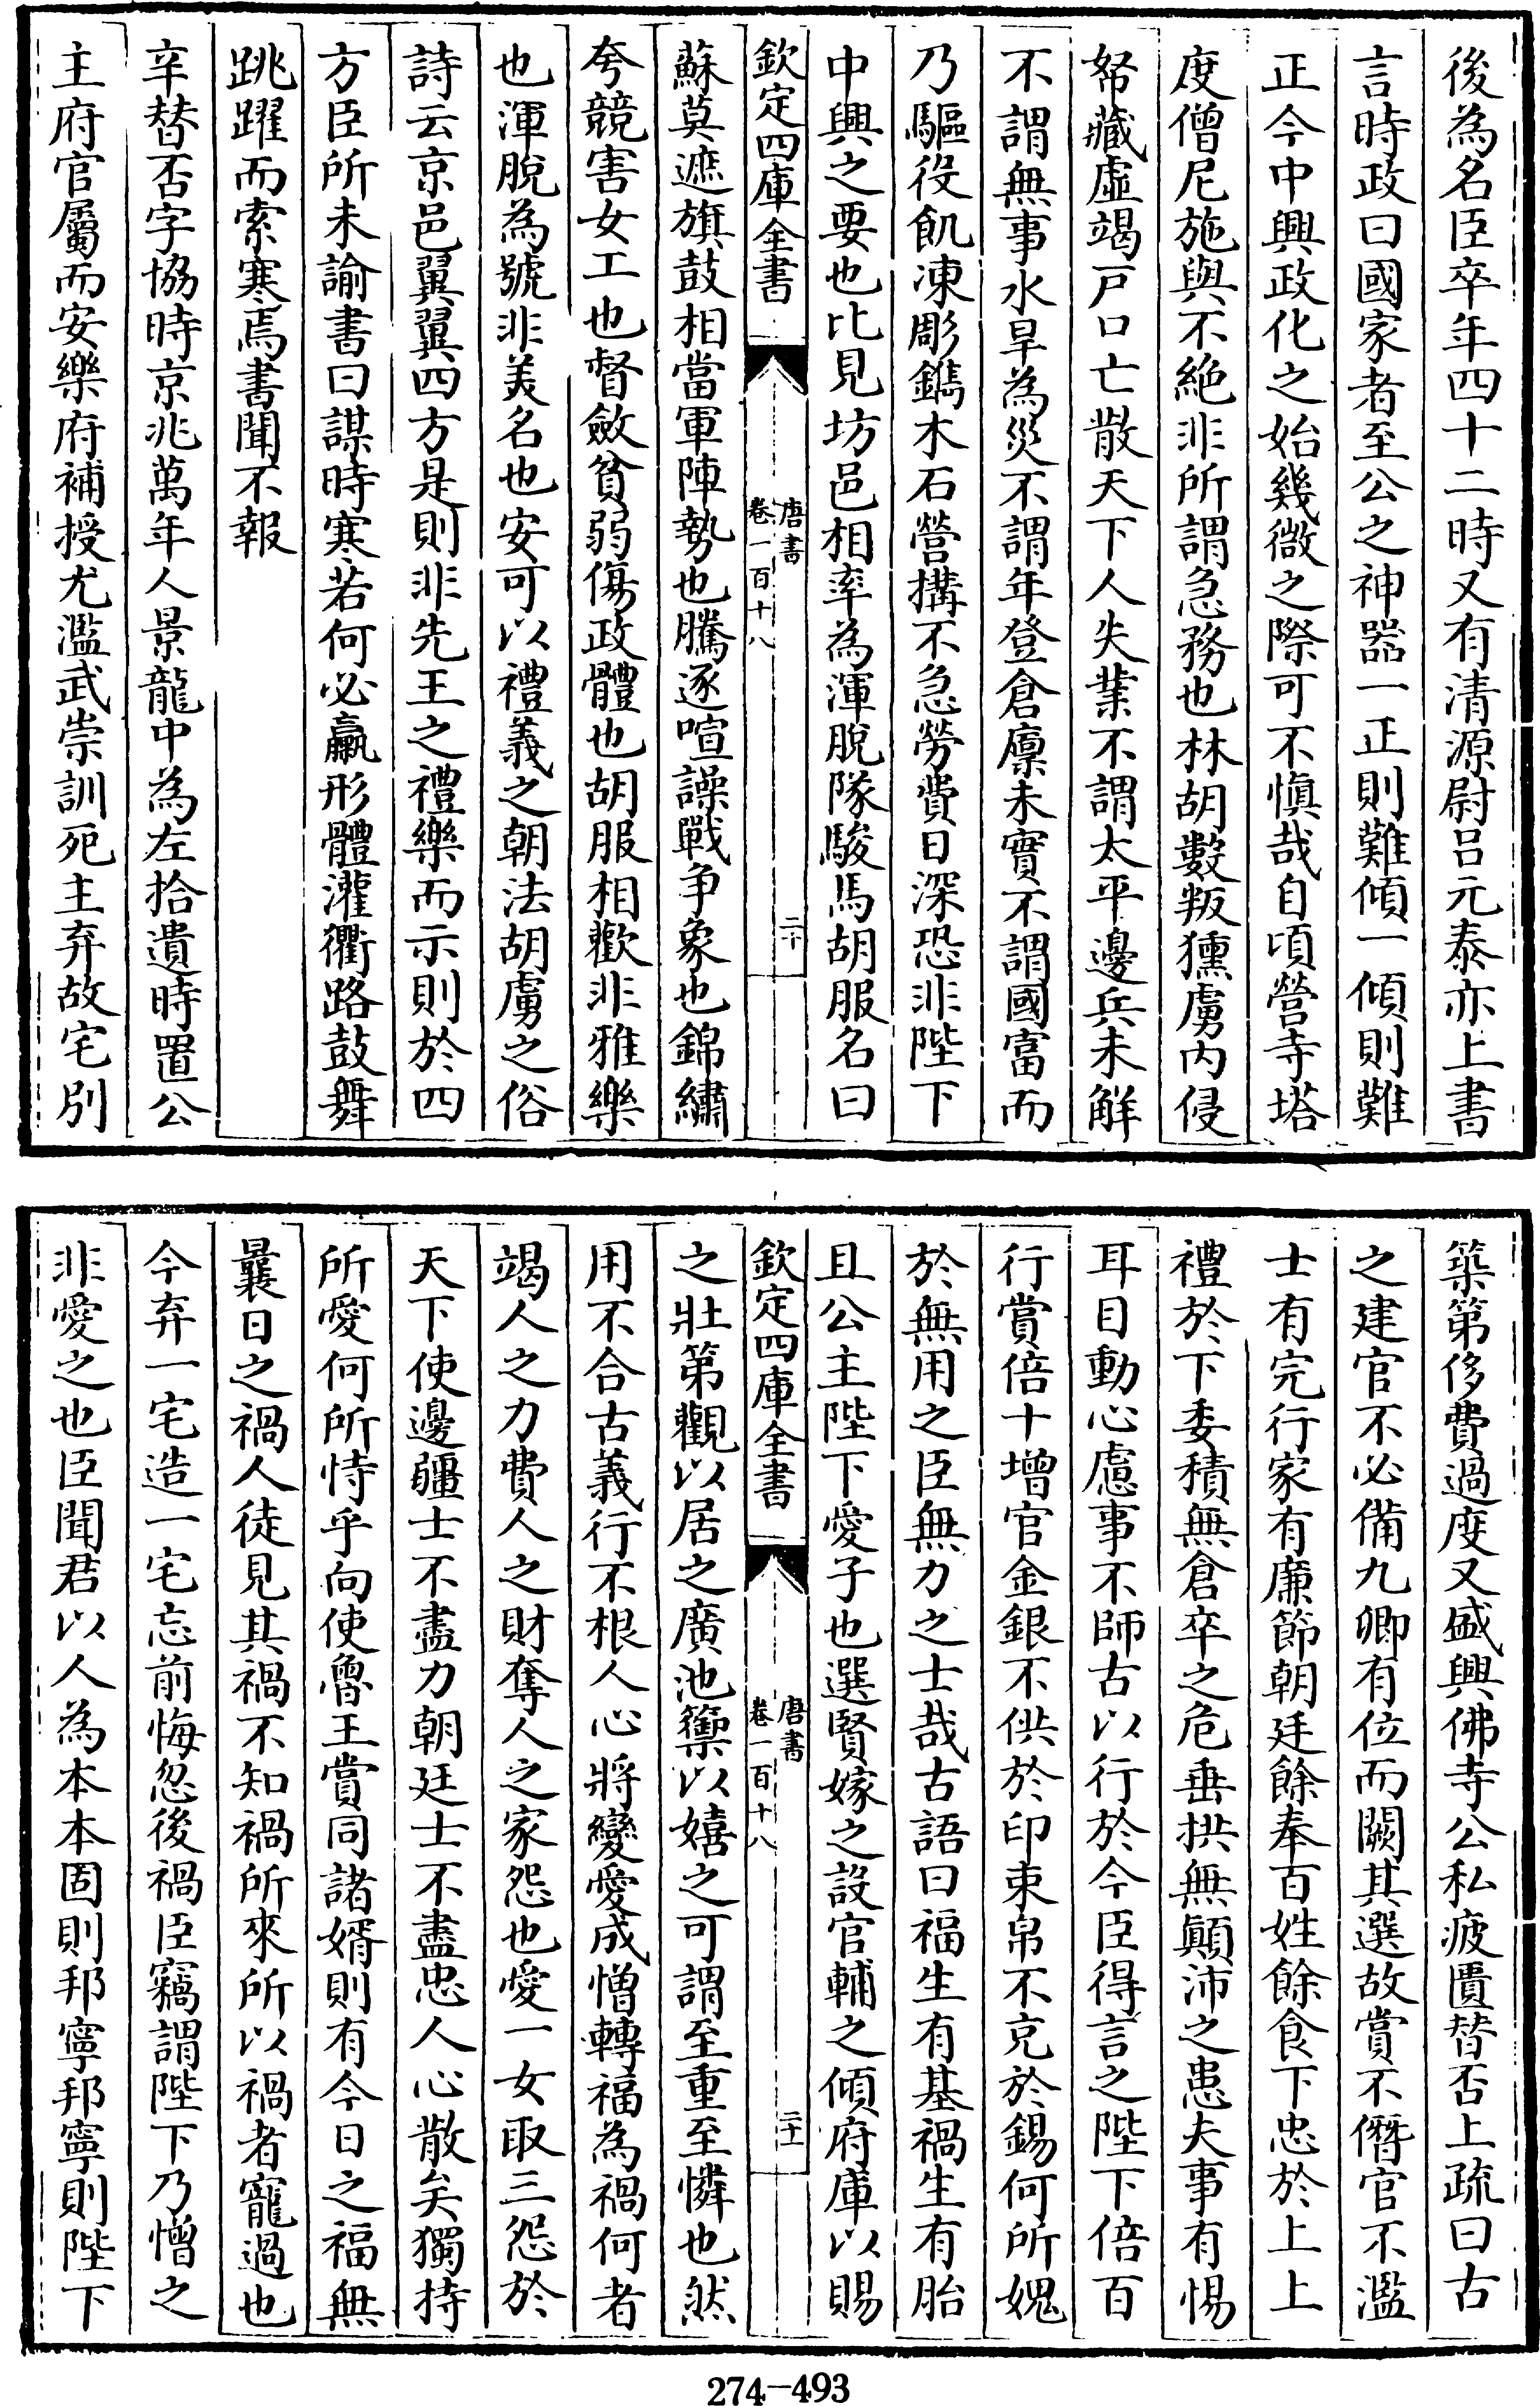 後為名臣卒年四十二時又有清源尉呂元泰亦上書
言時政曰國家者至公之神器一正則難傾一傾則難
正今中興政化之始幾微之際可不慎哉自頃營寺塔
度僧尼施與不絶非所謂急務也林胡數叛獯虜内侵
帑藏虛竭戸口亡散天下人失業不謂太平邊兵未解
不謂無事水旱為災不謂年登倉廩未實不謂國富而
乃驅役飢凍彫鐫木石營搆不急勞費日深恐非陛下
中興之要也比見坊邑相率為渾脫隊駿馬胡服名曰
欽定四庫全書
唐書
卷一百十八
二十
蘇莫遮旗鼓相當軍陣勢也騰逐喧譟戰争象也錦繡
夸競害女工也督斂貧弱傷政體也胡服相歡非雅樂
也渾脫為號非美名也安可以禮義之朝法胡虜之俗
詩云京邑翼翼四方是則非先王之禮樂而示則於四
方臣所未諭書曰謀時寒若何必臝形體灌衢路鼓舞
跳躍而索寒焉書聞不報
辛替否字協時京兆萬年人景龍中為左拾遺時置公
主府官屬而安樂府補授尤濫武崇訓死主弃故宅別
築第侈費過度又盛興佛寺公私疲匱替否上疏曰古
之建官不必備九卿有位而闕其選故賞不僭官不濫
士有完行家有廉節朝廷餘奉百姓餘食下忠於上上
禮於下委積無倉卒之危垂拱無顛沛之患夫事有惕
耳目動心慮事不師古以行於今臣得言之陛下倍百
行賞倍十增官金銀不供於印束帛不充於錫何所媿
於無用之臣無力之士哉古語曰福生有基禍生有胎
且公主陛下愛子也選賢嫁之設官輔之傾府庫以賜
欽定四庫全書
唐書
卷一百十八
二十一
之壯第觀以居之廣池籞以嬉之可謂至重至憐也然
用不合古義行不根人心將變愛成憎轉福為禍何者
竭人之力費人之財奪人之家怨也愛一女取三怨於
天下使邊疆士不盡力朝廷士不盡忠人心散矣獨持
所愛何所恃乎向使魯王賞同諸婿則有今日之福無
曩日之禍人徒見其禍不知禍所來所以禍者寵過也
今弃一宅造一宅忘前悔忽後禍臣竊謂陛下乃憎之
非愛之也臣聞君以人為本本固則邦寧邦寧則陛下
274-493